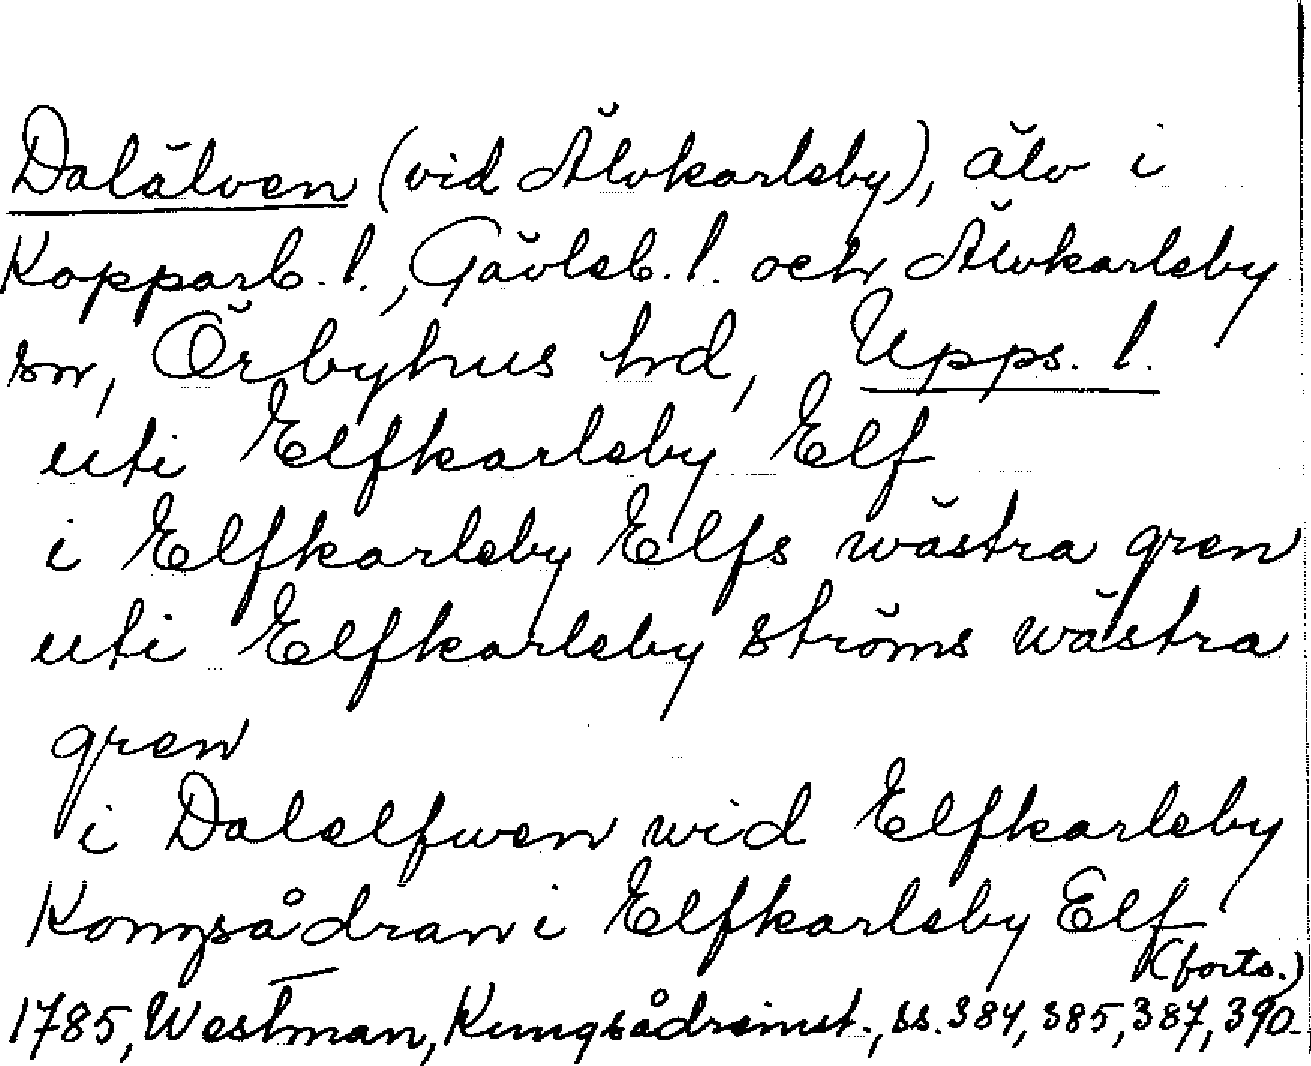 Dalälven (vid Älvkarleby), älv i
Kopparb. l., Gävleb. l. och Älvkarleby
sn, Örbyhus hd, Upps. l.
uti Elfkarleby Elf
i Elfkarleby Elfs wästra gren
uti Elfkarleby ströms wästra
gren
i Dalelfwen wid Elfkarleby
Kongsådran i Elfkarleby Elf
(forts.)
1785, Westman, Kungsådreinst., ss. 384, 385, 387, 390